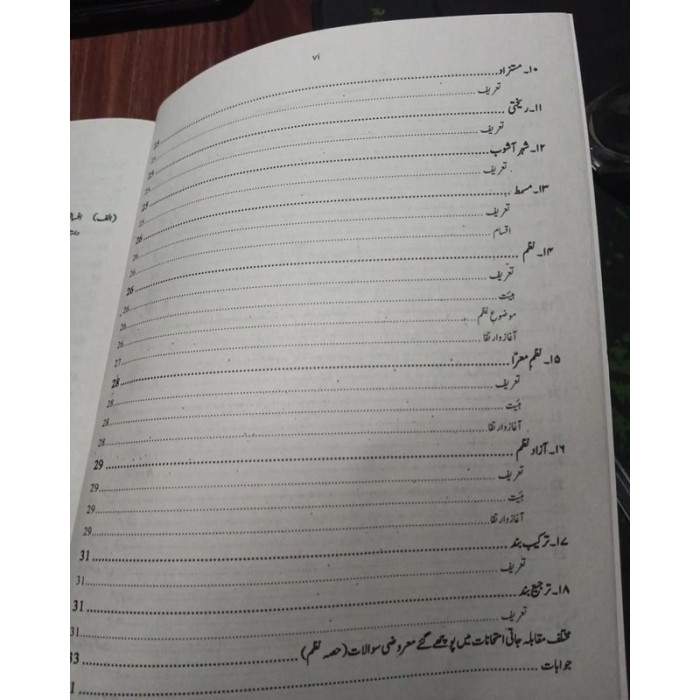 vi
۱۰۔ مستزاد
تعریف
۱۱۔ ریختی
تعریف 25
۱۲۔ شہر آشوب 25
تعریف 25
۱۳۔ مسمط
تعریف 26
اقسام 26
۱۴۔ نظم 26
تعریف 26
ہیئت 26
موضوعِ نظم 26
آغاز و ارتقا 27
۱۵۔ نظم معرّا 28
تعریف 28
ہیئت 28
آغاز و ارتقا 28
۱۶۔ آزاد نظم 29
تعریف 29
ہیئت 29
آغاز و ارتقا 29
۱۷۔ ترکیب بند 31
تعریف 31
۱۸۔ ترجیع بند 31
تعریف 31
مختلف مقابلہ جاتی امتحانات میں پوچھے گئے معروضی سوالات (حصہ نظم) 33
جوابات
(الف)